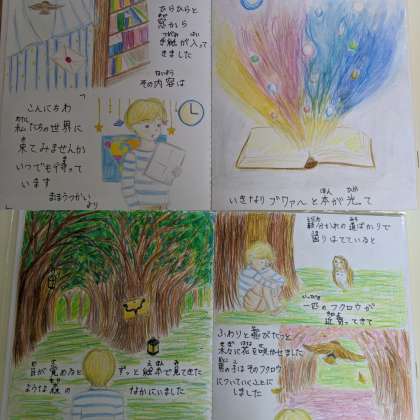 ひらひらと
窓から
手紙が入って
きました
その内容は
「
こんにちわ
私たちの世界に
来てみませんか
いつでも待って
います
まほうつかい
より
」
いきなりブワァ〜と本が光って
目が覚めると
ずっと絵本で見てきた
ような森の
なかにいました
数分かれの道ばかりで
困りはてていると
一匹のフクロウが
近寄ってきて
ふわりと飛びたつと
木々に花を咲かせました
男の子はそのフクロウ
についていくことに
しました